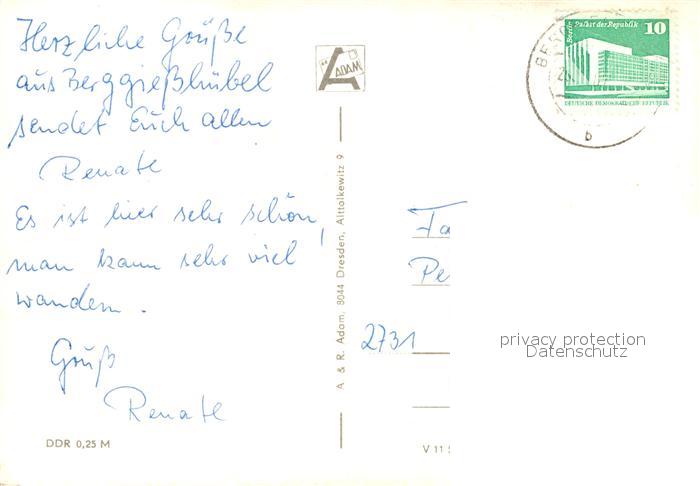 Herzliche Grüße
aus Berggießhübel
sendet Euch allen
Renate
Es ist hier sehr schön,
man kann sehr viel
wandern.
Gruß
Renate
DDR 0,25 M
ADAM
A & R. Adam, 8044 Dresden, Alttolkewitz 9
V 11
Berlin Palast der Republik 10
DEUTSCHE DEMOKRATISCHE REPUBLIK
b
Fa
Pe
2731
privacy protection
Datenschutz